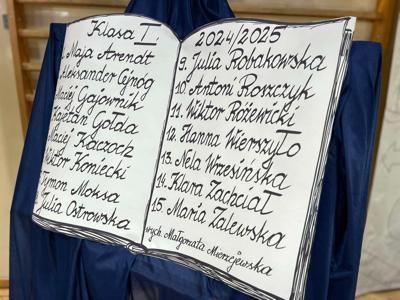 Klasa I:
Maja Arendt
Aleksander Cejnóg
Maciej Gajownik
Kajetan Gołda
Maciej Kaczoch
Wiktor Koniecki
Tymon Moksa
Julia Ostrowska
2024/2025
9. Julia Robakowska
10. Antoni Roszczyk
11. Wiktor Różewicki
12. Hanna Wierszyło
13. Nela Wrzesińska
14. Klara Zachciał
15. Maria Zalewska
wych. Małgorzata Mierzejewska